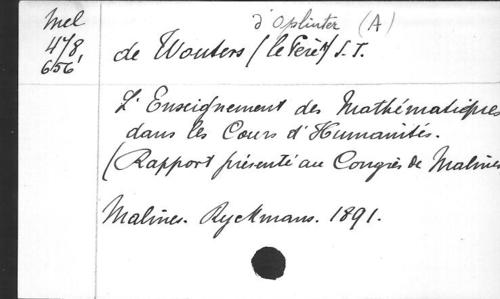 Mel
478,
656
d'Oplinter (A)
de Wouters (le Père) S.J.
L'Enseignement des Mathématiques
dans les Cours d'Humanités.
(Rapport présenté au Congrès de Malines
Malines. Ryckmans. 1891.